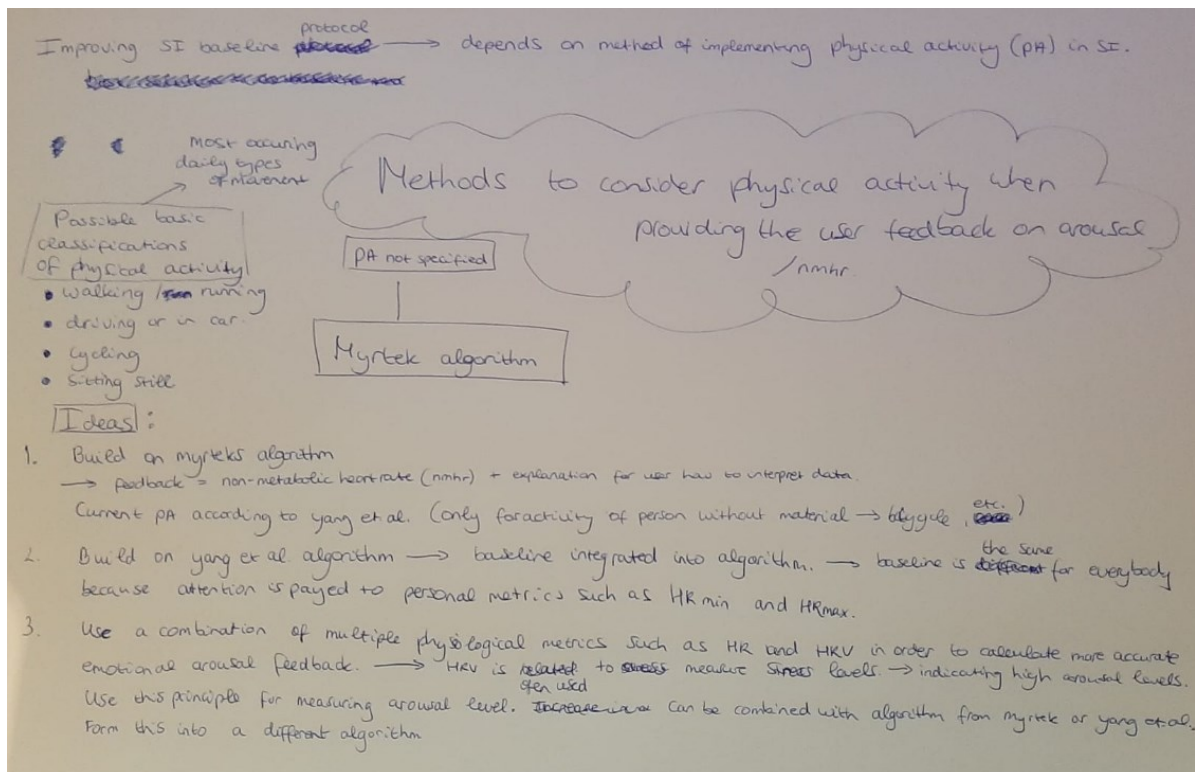 protocol
Improving SI baseline → depends on method of implementing physical activity (PA) in SI.
most occuring
daily types
of movement
Methods to consider physical activity when
providing the user feedback on arousal
/nmhr.
Possible basic
classifications
of physical activity
• walking / running
• driving or in car.
• Cycling
• Sitting still
PA not specified
Myrtek algorithm
Ideas:
1. Build on myrteks algorithm
→ feedback = non-metabolic heartrate (nmhr) + explanation for user how to interpret data.
etc.)
Current PA according to yang et al. (only for activity of person without material →
the same
2. Build on yang et al algorithm → baseline integrated into algorithm. → baseline is for everybody
because attention is payed to personal metrics such as HRmin and HRmax.
3. Use a combination of multiple physiological metrics such as HR and HRV in order to calculate more accurate
emotional arousal feedback. → HRV is to measure stress levels. → indicating high arousal levels.
often used
Use this principle for measuring arousal level. Can be combined with algorithm from myrtek or yang et al.
Form this into a different algorithm